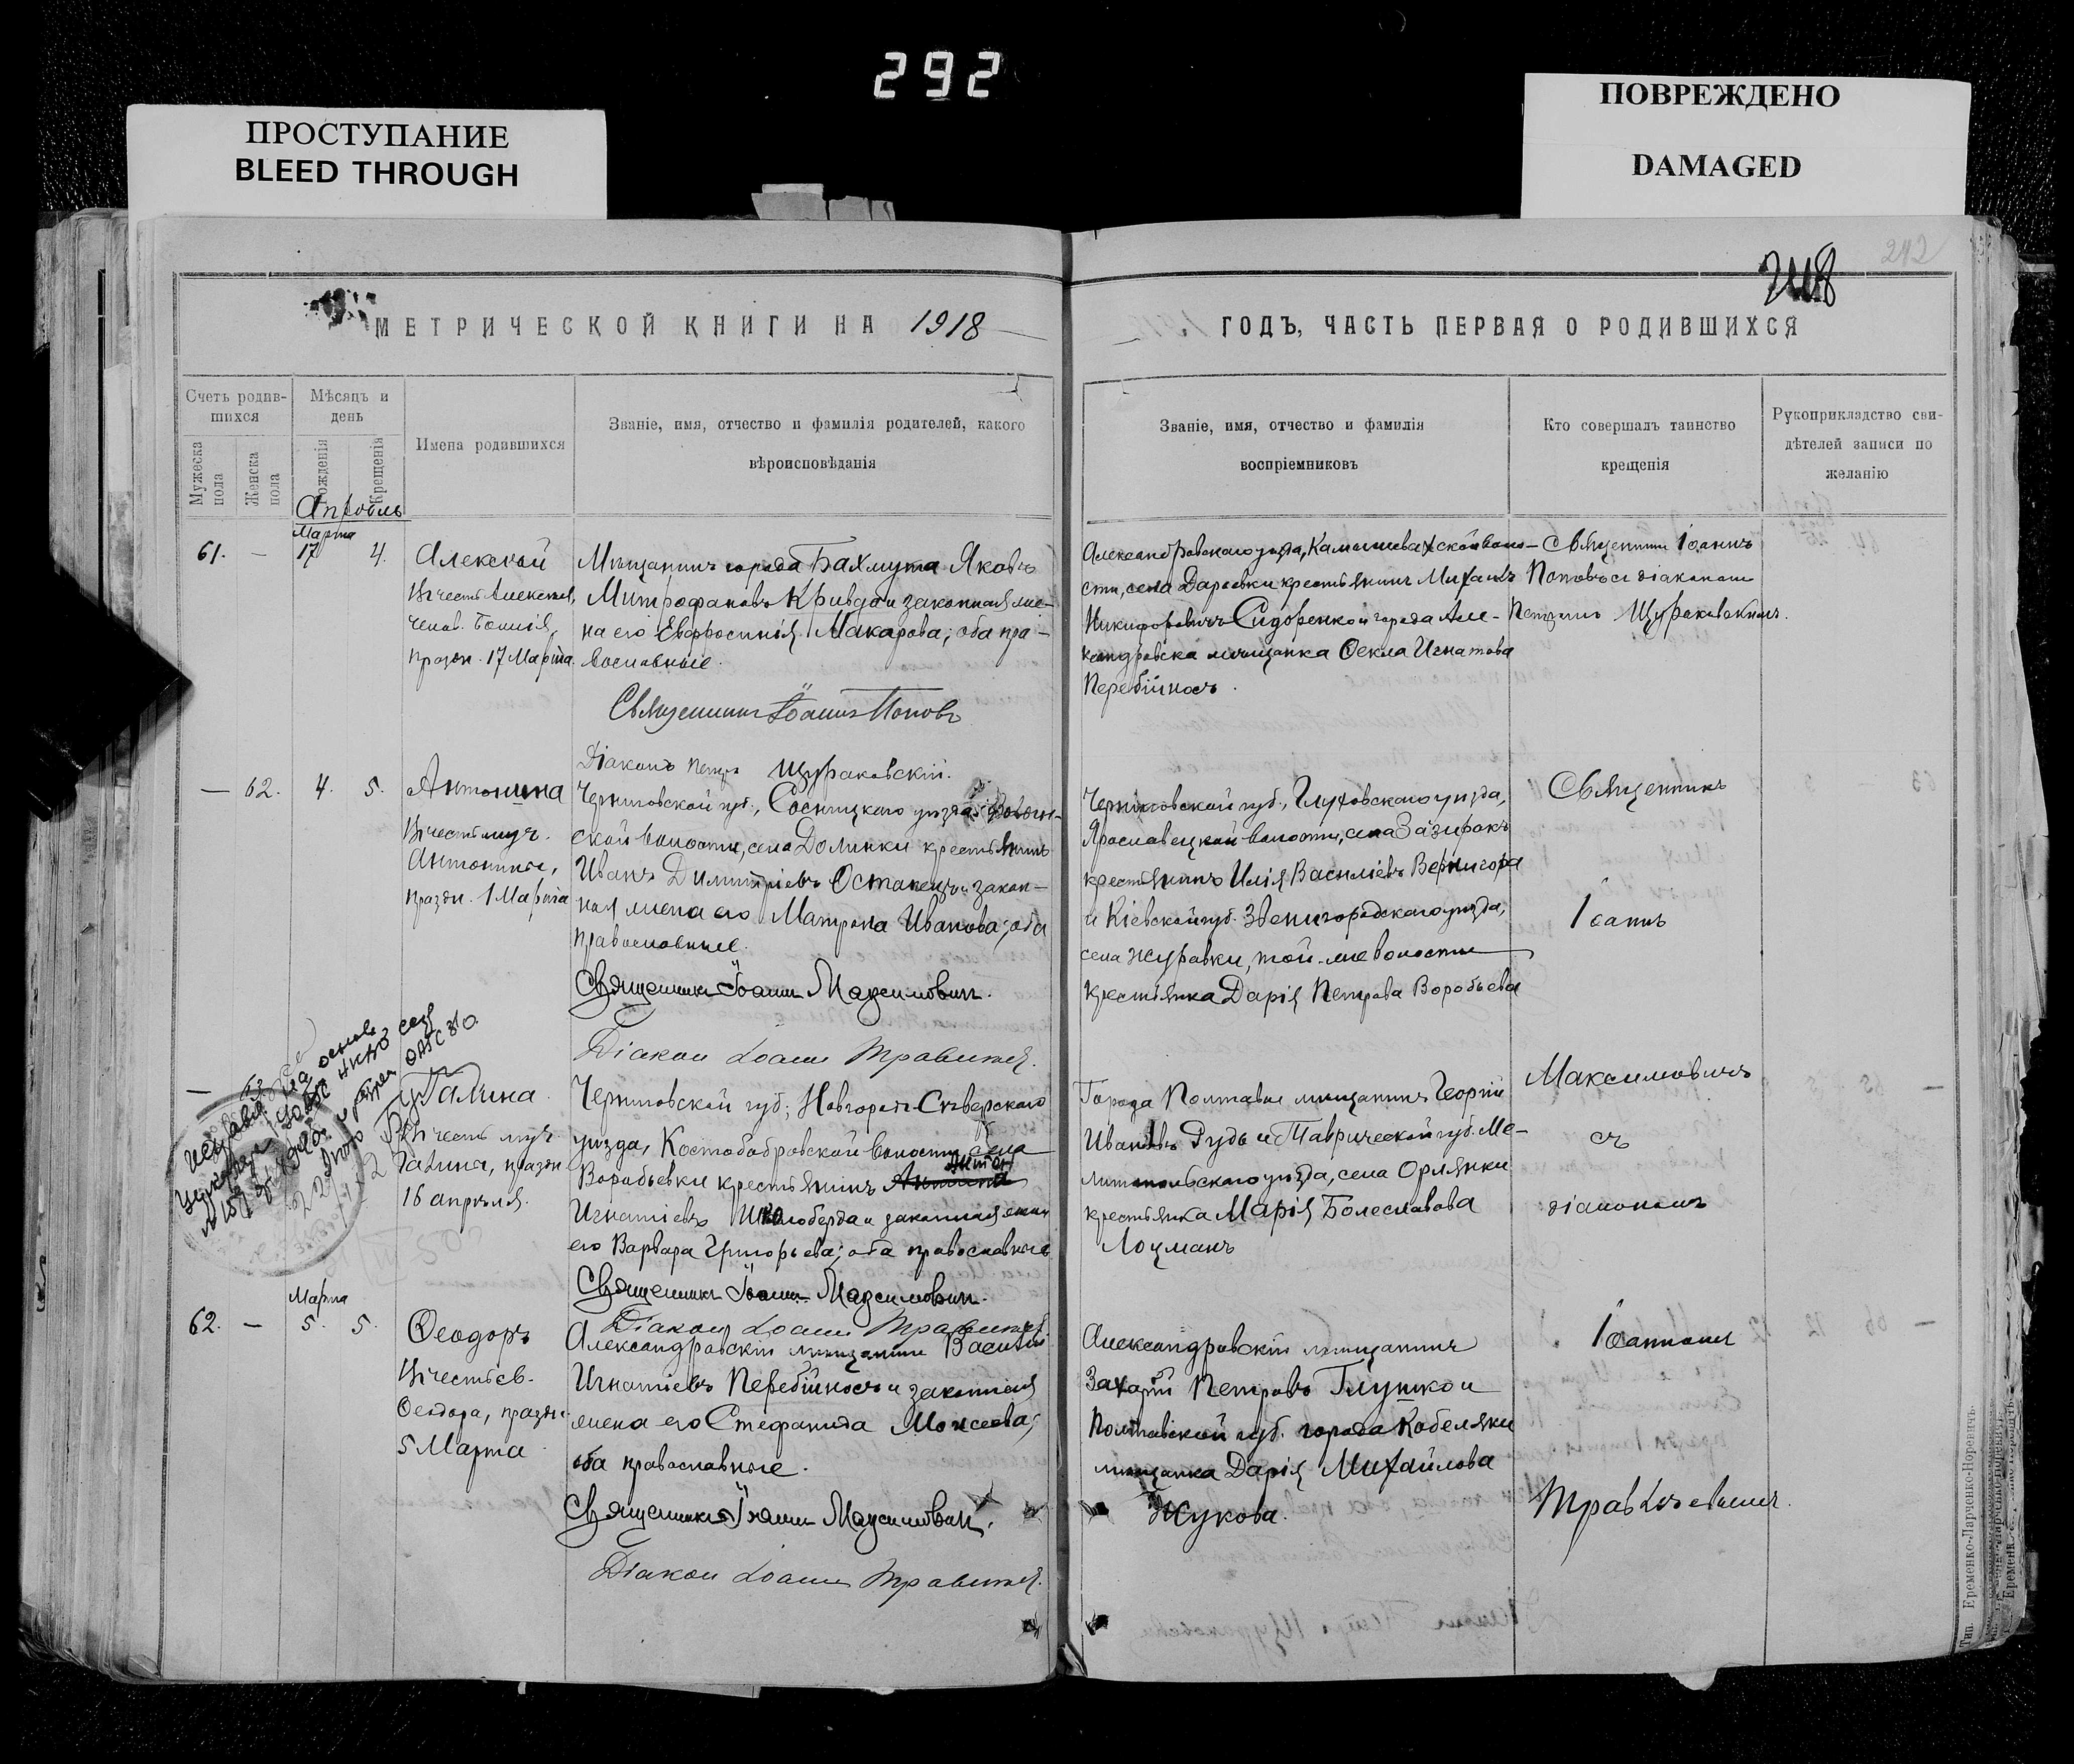 292
ПРОСТУПАНИЕ
BLEED THROUGH
ПОВРЕЖДЕНО
DAMAGED
242
МЕТРИЧЕСКОЙ КНИГИ НА 1918
ГОДЪ, ЧАСТЬ ПЕРВАЯ О РОДИВШИХСЯ
Счетъ родив-
шихся
Мужеска пола
Женска пола
Мѣсяцъ и
день
Рожденія
Крещенія
Имена родившихся
Званіе, имя, отчество и фамилія родителей, какого
вѣроисповѣданія
Званіе, имя, отчество и фамилія
воспріемниковъ
Кто совершалъ таинство
крещенія
Рукоприкладство сви-
дѣтелей записи по
желанію
Апрѣль
Марта
61. — 17 4.
Алексѣй
Въ честь Алексѣя,
челов. Божія,
праздн. 17 Марта.
Мѣщанинъ города Бахмута Яковъ
Митрофановъ Кривда и законная же-
на его Евфросинія Макарова; оба пра-
вославные.
Священникъ Іоаннъ Поповъ
Діаконъ Петръ Щураковскій.
Александровскаго уѣзда, Камышевахской воло-
сти, села Дарьевки крестьянинъ Михаилъ
Никифоровичъ Сидоренко и города Але-
ксандровска мѣщанка Ѳекла Игнатова
Перебійносъ.
Священникъ Іоаннъ
Поповъ съ діакономъ
Петромъ Щураковскимъ.
— 62. 4. 5.
Антонина
Въ честь муч.
Антонины,
праздн. 1 Марта
Черниговской губ., Сосницкаго уѣзда,
ской волости, села Долинки крестьянинъ
Иванъ Димитріевъ Остапецъ и закон-
ная жена его Матрона Иванова; оба
православные.
Священникъ Іоаннъ Максимовичъ.
Діаконъ Іоаннъ
Черниговской губ., Глуховскаго уѣзда,
Ярославецкой волости, села Зазирокъ
крестьянинъ Илія Василіевъ Вернигора
и Кіевской губ. Звенигородскаго уѣзда,
села Журавки, той-же волости
крестьянка Дарія Петрова Воробьева
Священникъ
Іоаннъ
Максимовичъ
съ
діакономъ
Іоанномъ
— 63.
Галина
Въ честь муч.
Галины, праздн
16 апрѣля.
Черниговской губ., Новгородъ-Сѣверскаго
уѣзда, Костобобровской волости, села
Воробьевки крестьянинъ Антон
Игнатіевъ Шолоберда и законная жена
его Варвара Григорьева; оба православные
Священникъ Іоаннъ Максимовичъ.
Діаконъ Іоаннъ
Города Полтавы мѣщанинъ Георгій
Ивановъ Дудь и Таврической губ. Ме-
литопольскаго уѣзда, села Орлянки
крестьянка Марія Болеславова
Лоцманъ
Марта
62. — 5. 5.
Ѳеодоръ
Въ честь св.
Ѳеодора, праздн
5 Марта
Александровскій мѣщанинъ Василій
Игнатіевъ Перебійносъ и законная
жена его Стефанида Моисеева;
оба православные.
Священникъ Іоаннъ Максимовичъ.
Діаконъ Іоаннъ
Александровскій мѣщанинъ
Захарій Петровъ Глушко и
Полтавской губ. города Кобеляки
мѣщанка Дарія Михайлова
Жукова.
Тип. Еременко-Ларченко-Норевичъ.